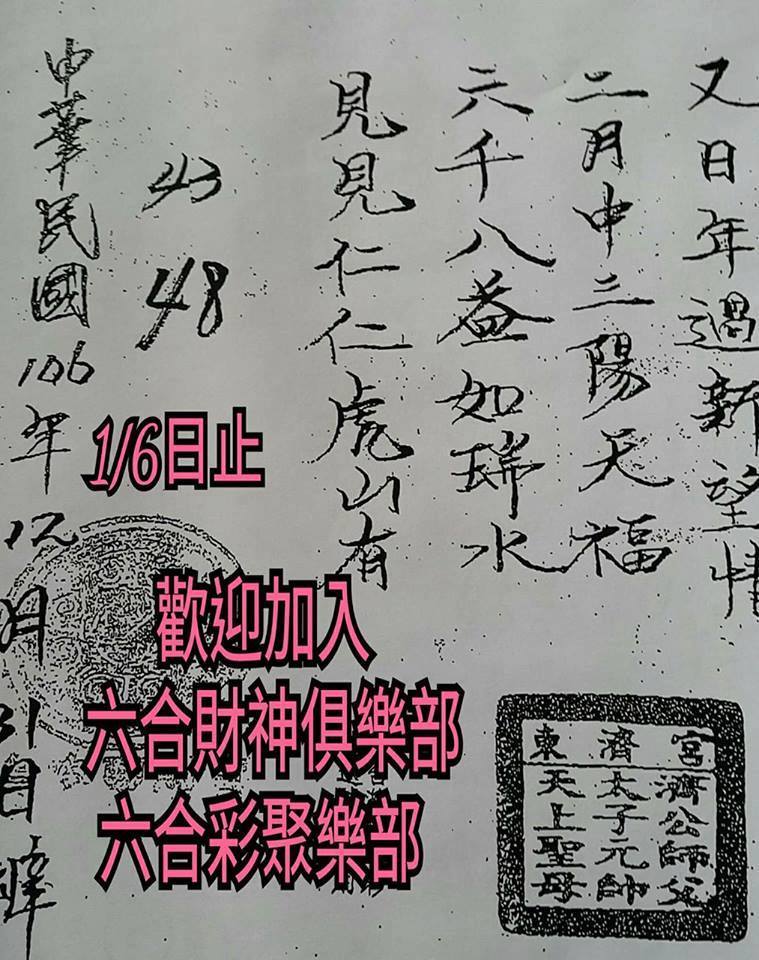 又日年過新望情
二月中三陽天福
六千八益如瑞水
見見仁仁虎山有
43
48
中華民國106年12月31日
1/6日止
歡迎加入
六合財神俱樂部
六合彩聚樂部
東濟宮
濟公師父
太子元帥
天上聖母